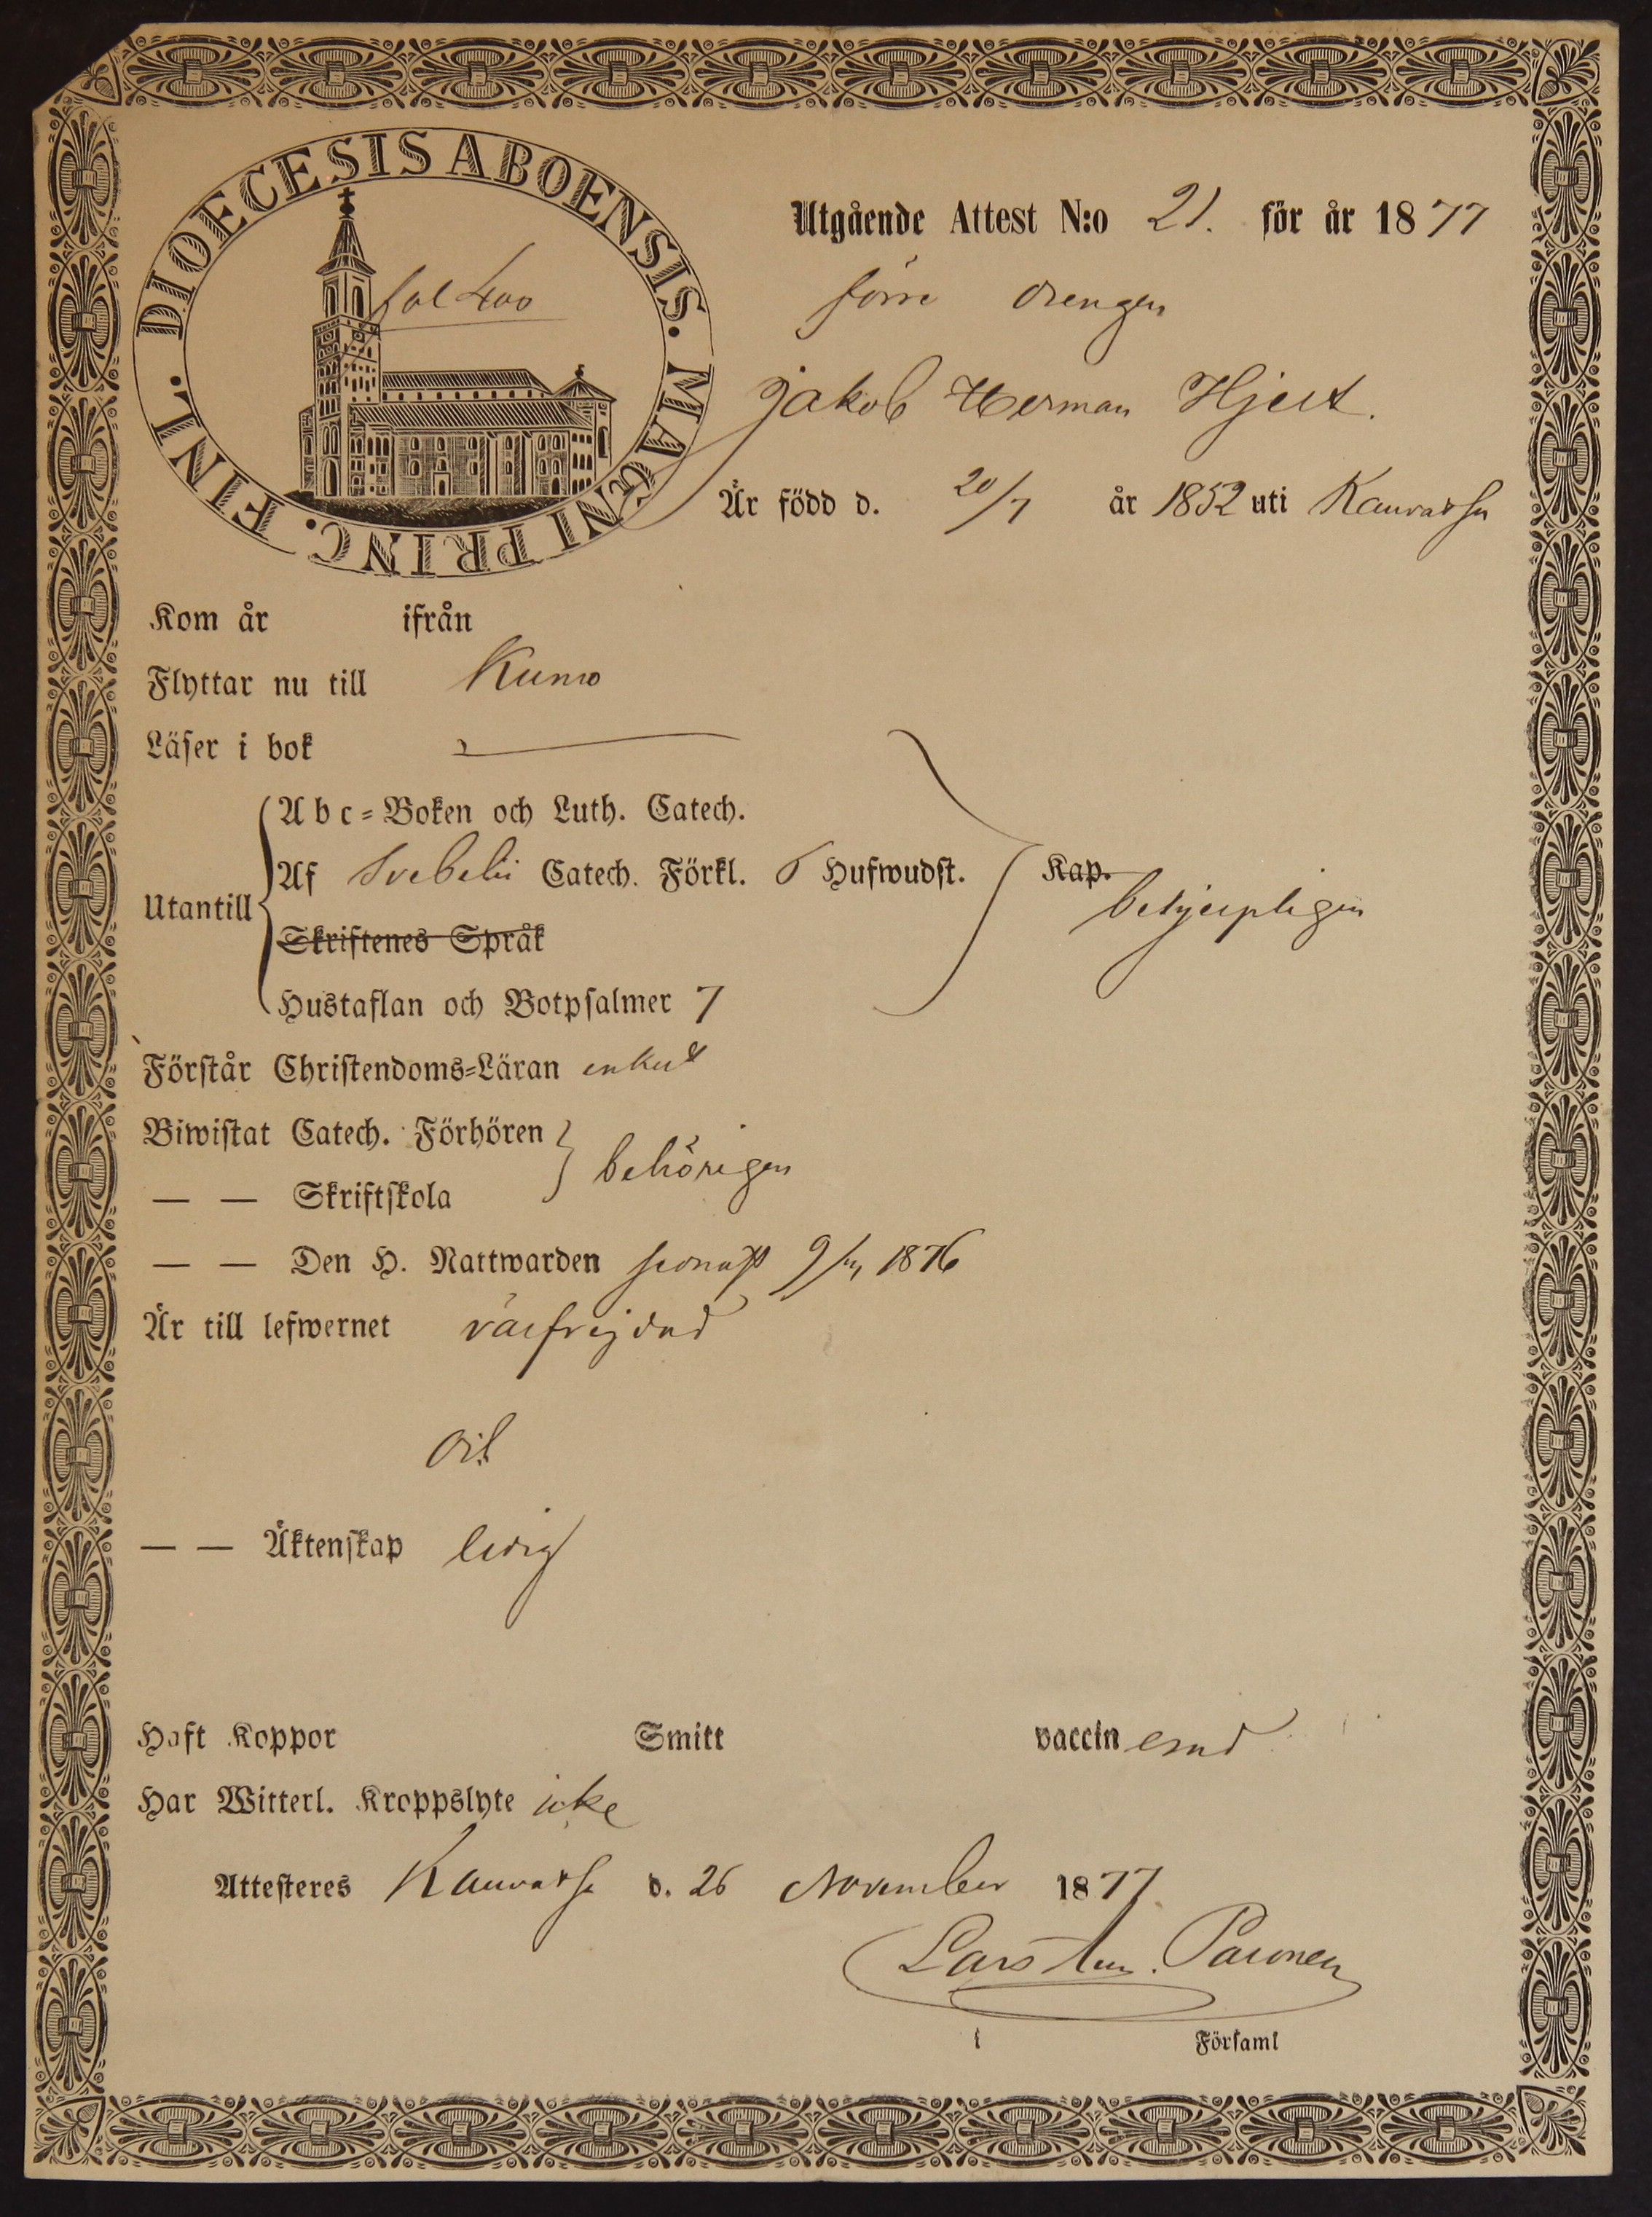 DIOECESIS ABOENSIS. MAGNI PRINC. FINL.
fol 400
Utgående Attest N:o 21. för år 1877
förre drengen
Jakob Herman Hjert.
Är född d. 20/7 år 1852 uti Kauvatsa
Kom år ifrån
Flyttar nu till Kumo
Läser i bok
Utantill
Abc=Boken och Luth. Catech.
Af Svebelii Catech. Förkl. 6 Hufwudst. Kap.
behjelpligen
Skriftenes Språk
Hustaflan och Botpsalmer 7
Förstår Christendoms=Läran enkelt
Biwistat Catech. Förhören
behörigen
— — Skriftskola
— — Den H. Nattwarden sednast 9/ 1876
Är till lefwernet välfrejdad
— — Äktenskap ledig
Haft Koppor Smitt vaccinerad
Har Witterl. Kroppslyte icke
Attesteres Kauvatsa d. 26 November 1877
Lars
i Församl